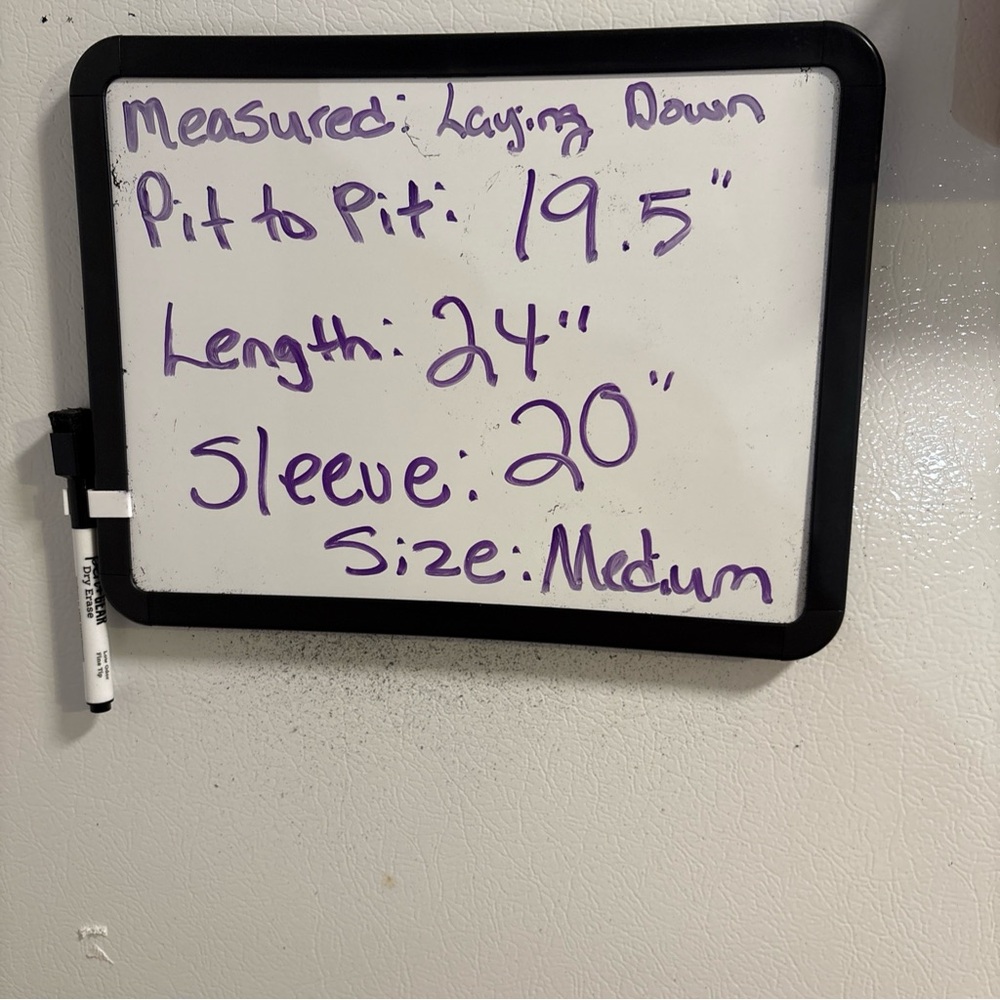 Measured: Laying Down
Pit to Pit: 19.5"
Length: 24"
Sleeve: 20"
Size: Medium
Dry Erase
Low Odor
Fine Tip